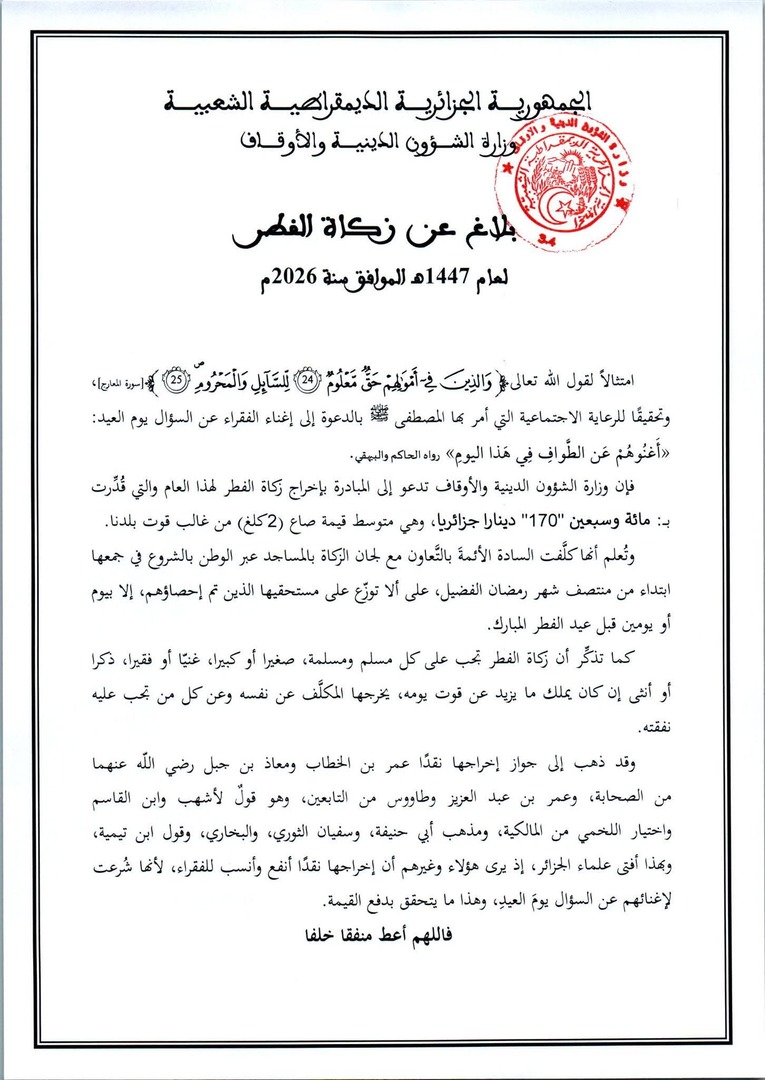 الجمهورية الجزائرية الديمقراطية الشعبية
وزارة الشؤون الدينية والأوقاف
وزارة الشؤون الدينية والأوقاف
الجزائرية الديمقراطية الشعبية
34
بلاغ عن زكاة الفطر
لعام 1447هـ الموافق سنة 2026م
امتثالاً لقول الله تعالى ﴿وَالذِينَ فِےٓ أَمْوَٰلِهِمْ حَقّٞ مَّعْلُومٞ (24) لِّلسَّآئِلِ وَالْمَحْرُومِۖ (25)﴾ [سورة المعارج]،
وتحقيقًا للرعاية الاجتماعية التي أمر بها المصطفى ﷺ بالدعوة إلى إغناء الفقراء عن السؤال يوم العيد:
«أَغنُوهُمْ عَن الطَّوافِ فِي هَذا اليومِ» رواه الحاكم والبيهقي.
فإن وزارة الشؤون الدينية والأوقاف تدعو إلى المبادرة بإخراج زكاة الفطر لهذا العام والتي قُدِّرت
بـ: مائة وسبعين "170" دينارا جزائريا، وهي متوسط قيمة صاع (2كلغ) من غالب قوت بلدنا.
وتُعلم أنها كلَّفت السادة الأئمةَ بالتَّعاون مع لجان الزكاة بالمساجد عبر الوطن بالشروع في جمعها
ابتداء من منتصف شهر رمضان الفضيل، على ألا توزّع على مستحقيها الذين تم إحصاؤهم، إلا بيوم
أو يومين قبل عيد الفطر المبارك.
كما تذكِّر أن زكاة الفطر تجب على كل مسلم ومسلمة، صغيرا أو كبيرا، غنيّا أو فقيرا، ذكرا
أو أنثى إن كان يملك ما يزيد عن قوت يومه، يخرجها المكلَّف عن نفسه وعن كل من تجب عليه
نفقته.
وقد ذهب إلى جواز إخراجها نقدًا عمر بن الخطاب ومعاذ بن جبل رضي اللّه عنهما
من الصحابة، وعمر بن عبد العزيز وطاووس من التابعين، وهو قولٌ لأشهب وابن القاسم
واختيار اللخمي من المالكية، ومذهب أبي حنيفة، وسفيان الثوري، والبخاري، وقول ابن تيمية،
وبهذا أفتى علماء الجزائر، إذ يرى هؤلاء وغيرهم أن إخراجها نقدًا أنفع وأنسب للفقراء، لأنها شُرعت
لإغنائهم عن السؤال يومَ العيدِ، وهذا ما يتحقق بدفع القيمة.
فاللهم أعط منفقا خلفا